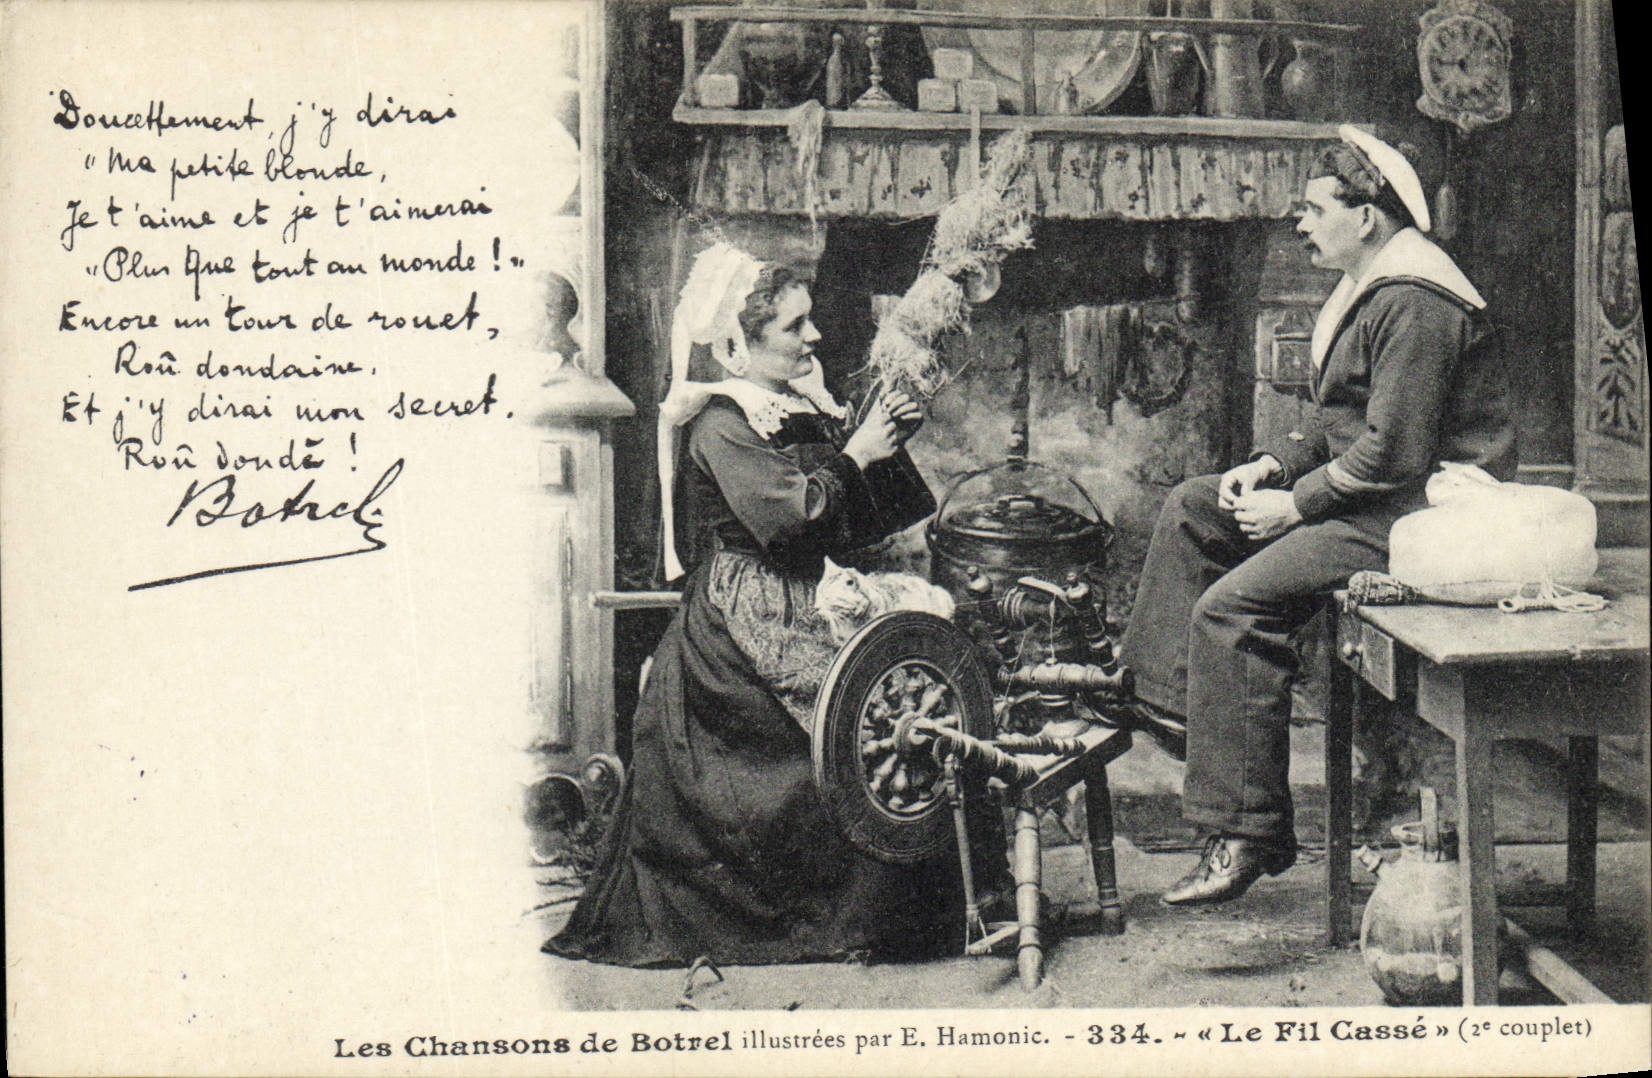 Doucettement, j'y dirai
"Ma petite blonde,
Je t'aime et je t'aimerai
"Plus que tout au monde !"
Encore un tour de rouet,
Roû dondaine,
Et j'y dirai mon secret.
Roû dondé !
Botrel
Les Chansons de Botrel illustrées par E. Hamonic. - 334. - « Le Fil Cassé » (2e couplet)